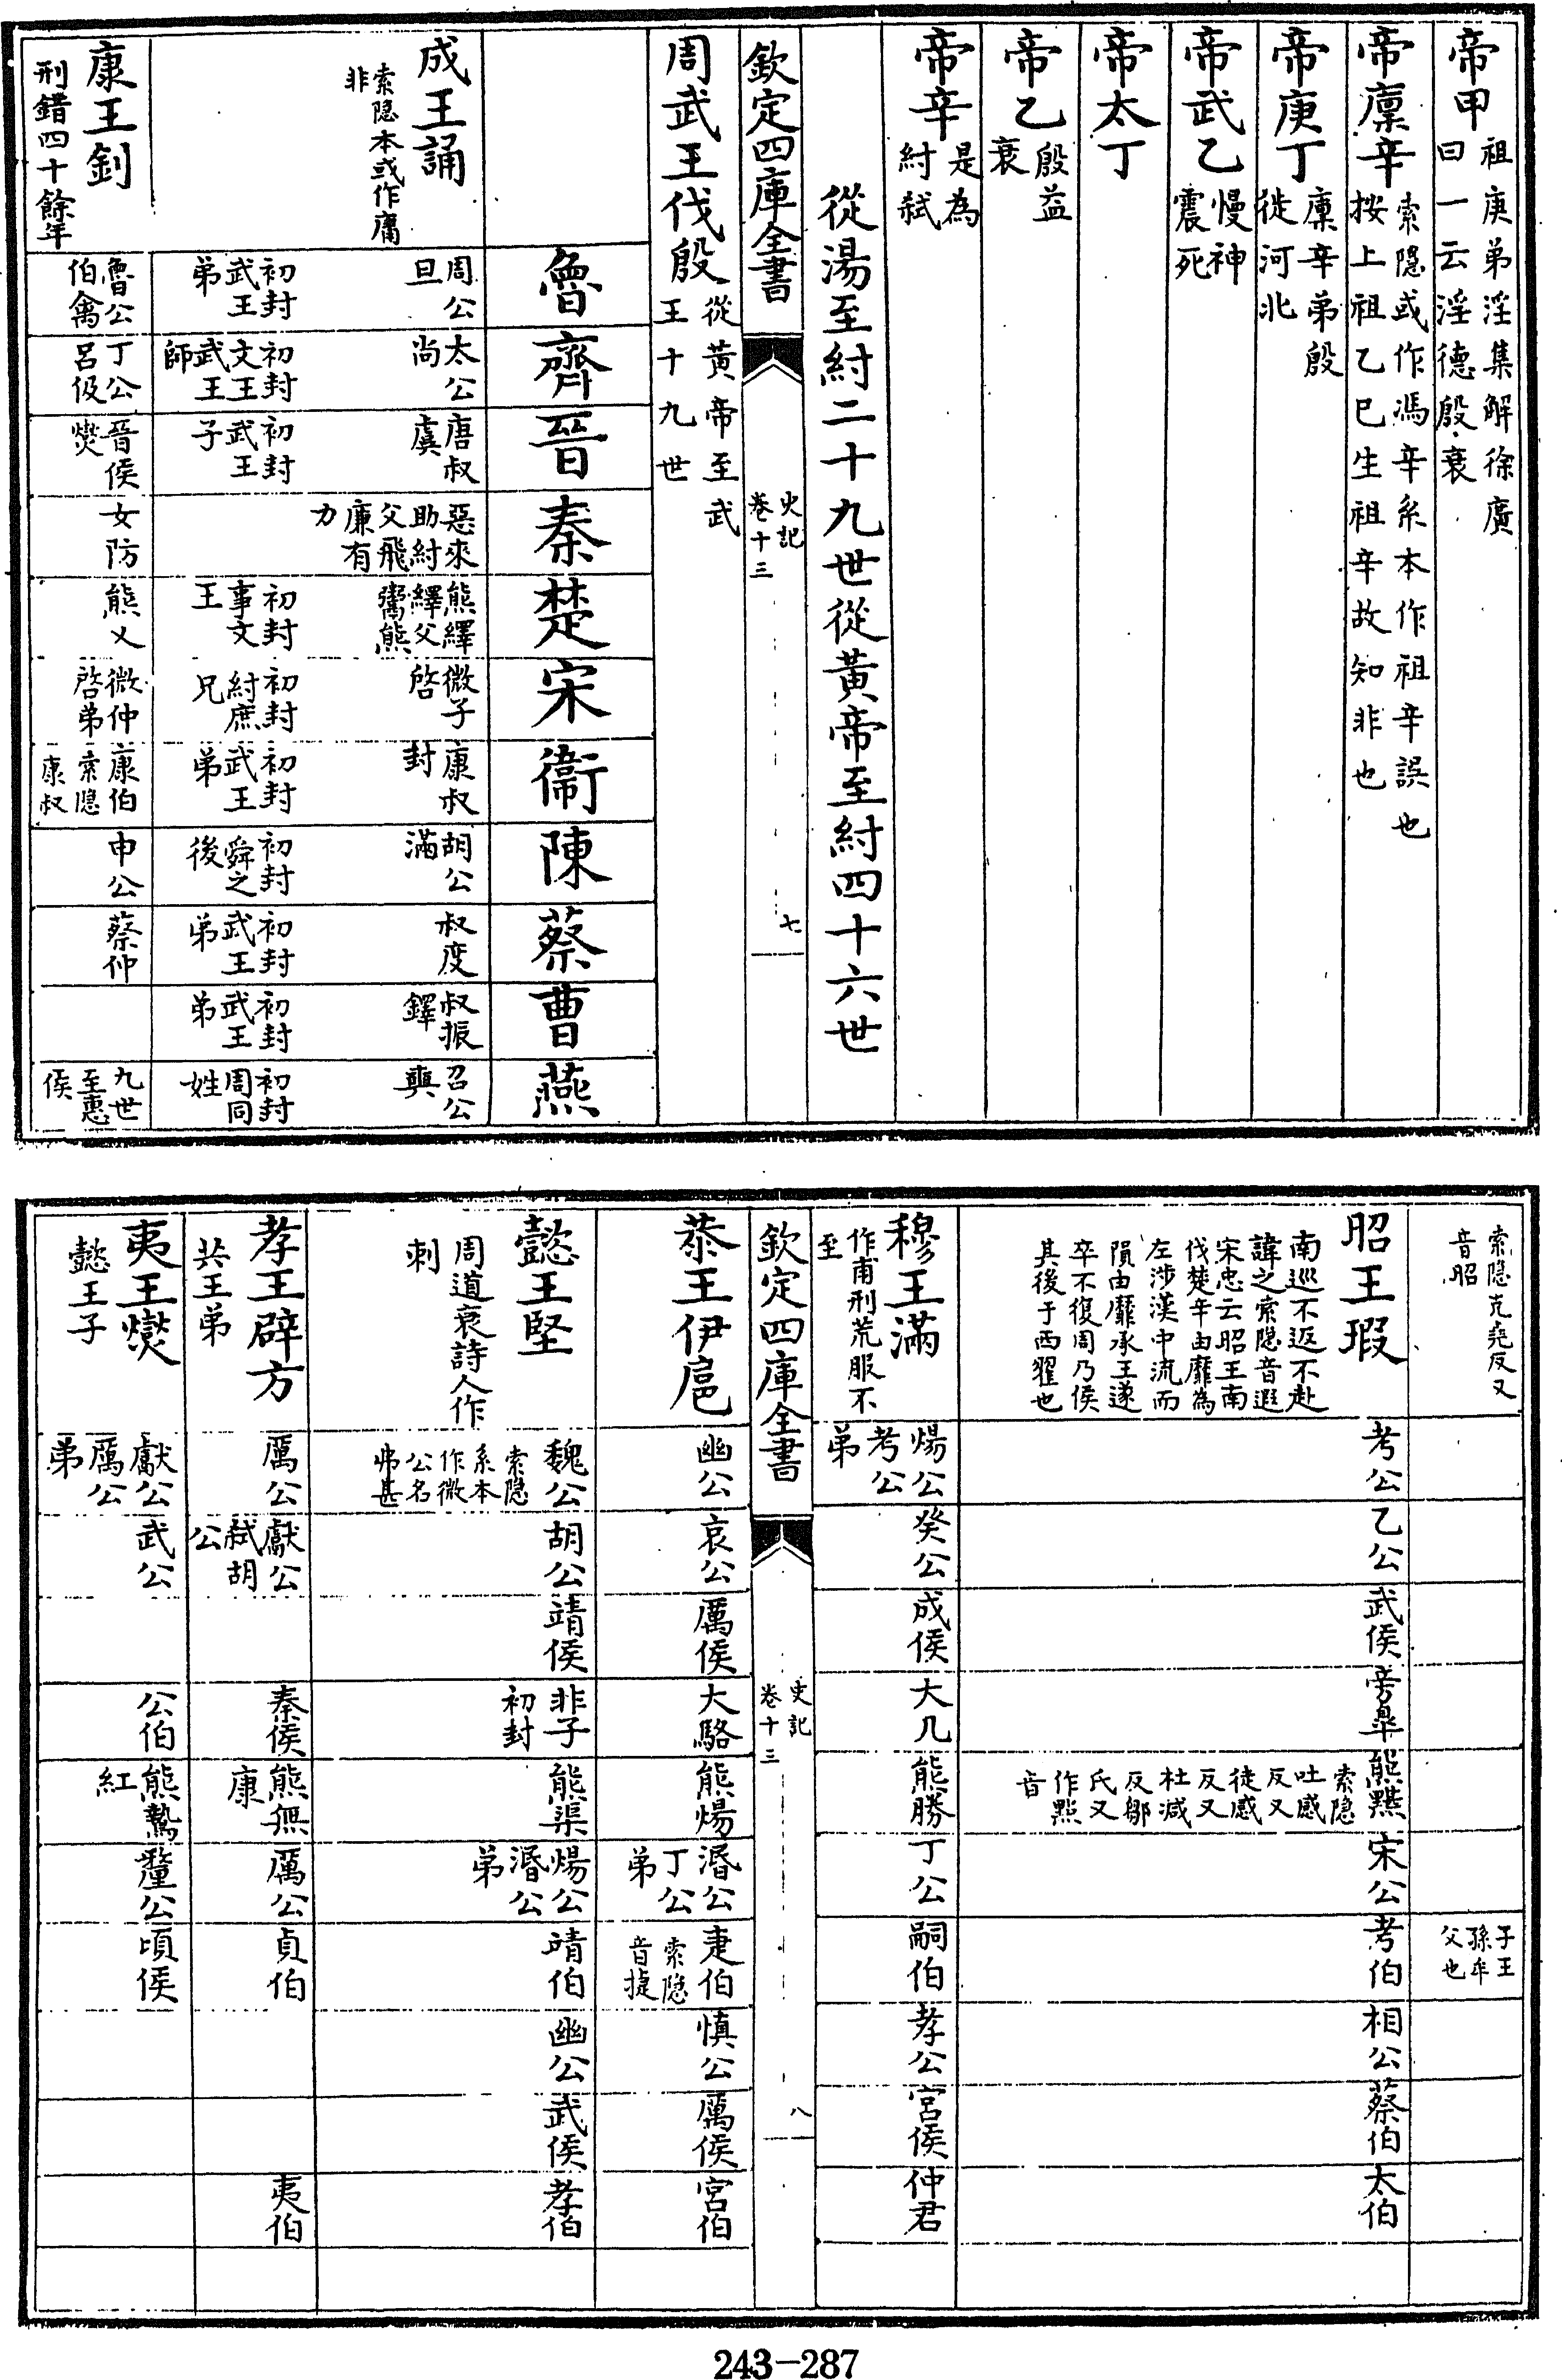 帝甲
祖庚弟淫集解徐廣
曰一云淫德殷衰
帝廩辛
索隱或作馮辛系本作祖辛誤也
按上祖乙巳生祖辛故知非也
帝庚丁
廩辛弟殷
徙河北
帝武乙
慢神
震死
帝太丁
帝乙
殷益
衰
帝辛
是為
紂弑
從湯至紂二十九世從黃帝至紂四十六世
欽定四庫全書
史記
卷十三
七
周武王伐殷
從黃帝至武
王十九世
魯
齊
晉
秦
楚
宋
衞
陳
蔡
曹
燕
成王誦
索隱本或作庸
非
周公
旦
初封
武王
弟
太公
尚
初封
文王
武王
師
唐叔
虞
初封
武王
子
惡來
助紂
父飛
廉有
力
熊繹
繹父
鬻熊
初封
事文
王
微子
啓
初封
紂庶
兄
康叔
封
初封
武王
弟
胡公
滿
初封
舜之
後
叔度
初封
武王
弟
叔振
鐸
初封
武王
弟
召公
奭
初封
周同
姓
康王釗
刑錯四十餘年
魯公
伯禽
丁公
呂伋
晉侯
燮
女防
熊乂
微仲
啓弟
康伯
索隱
康叔
申公
蔡仲
九世
至惠
侯
索隱克堯反又
音昭
子王
孫牟
父也
昭王瑕
南巡不返不赴
諱之索隱音遐
宋忠云昭王南
伐楚辛由靡為
左涉漢中流而
隕由靡承王遂
卒不復周乃侯
其後于西翟也
考公
乙公
武侯
旁臯
熊黮
索隱
吐感
反又
徒感
反又
杜減
反鄒
氏又
作點
音
宋公
考伯
相公
蔡伯
太伯
穆王滿
作甫刑荒服不
至
煬公
考公
弟
癸公
成侯
大几
熊勝
丁公
嗣伯
孝公
宮侯
仲君
欽定四庫全書
史記
卷十三
八
恭王伊扈
幽公
哀公
厲侯
大駱
熊煬
湣公
丁公
弟
疌伯
索隱
音捷
慎公
厲侯
宮伯
懿王堅
周道衰詩人作
刺
魏公
索隱
系本
作微
公名
弗甚
胡公
靖侯
非子
初封
熊渠
煬公
湣公
弟
靖伯
幽公
武侯
孝伯
孝王辟方
共王弟
厲公
獻公
弑胡
公
秦侯
熊無
康
厲公
貞伯
夷伯
夷王燮
懿王子
獻公
厲公
弟
武公
公伯
熊鷙
紅
釐公
頃侯
243-287